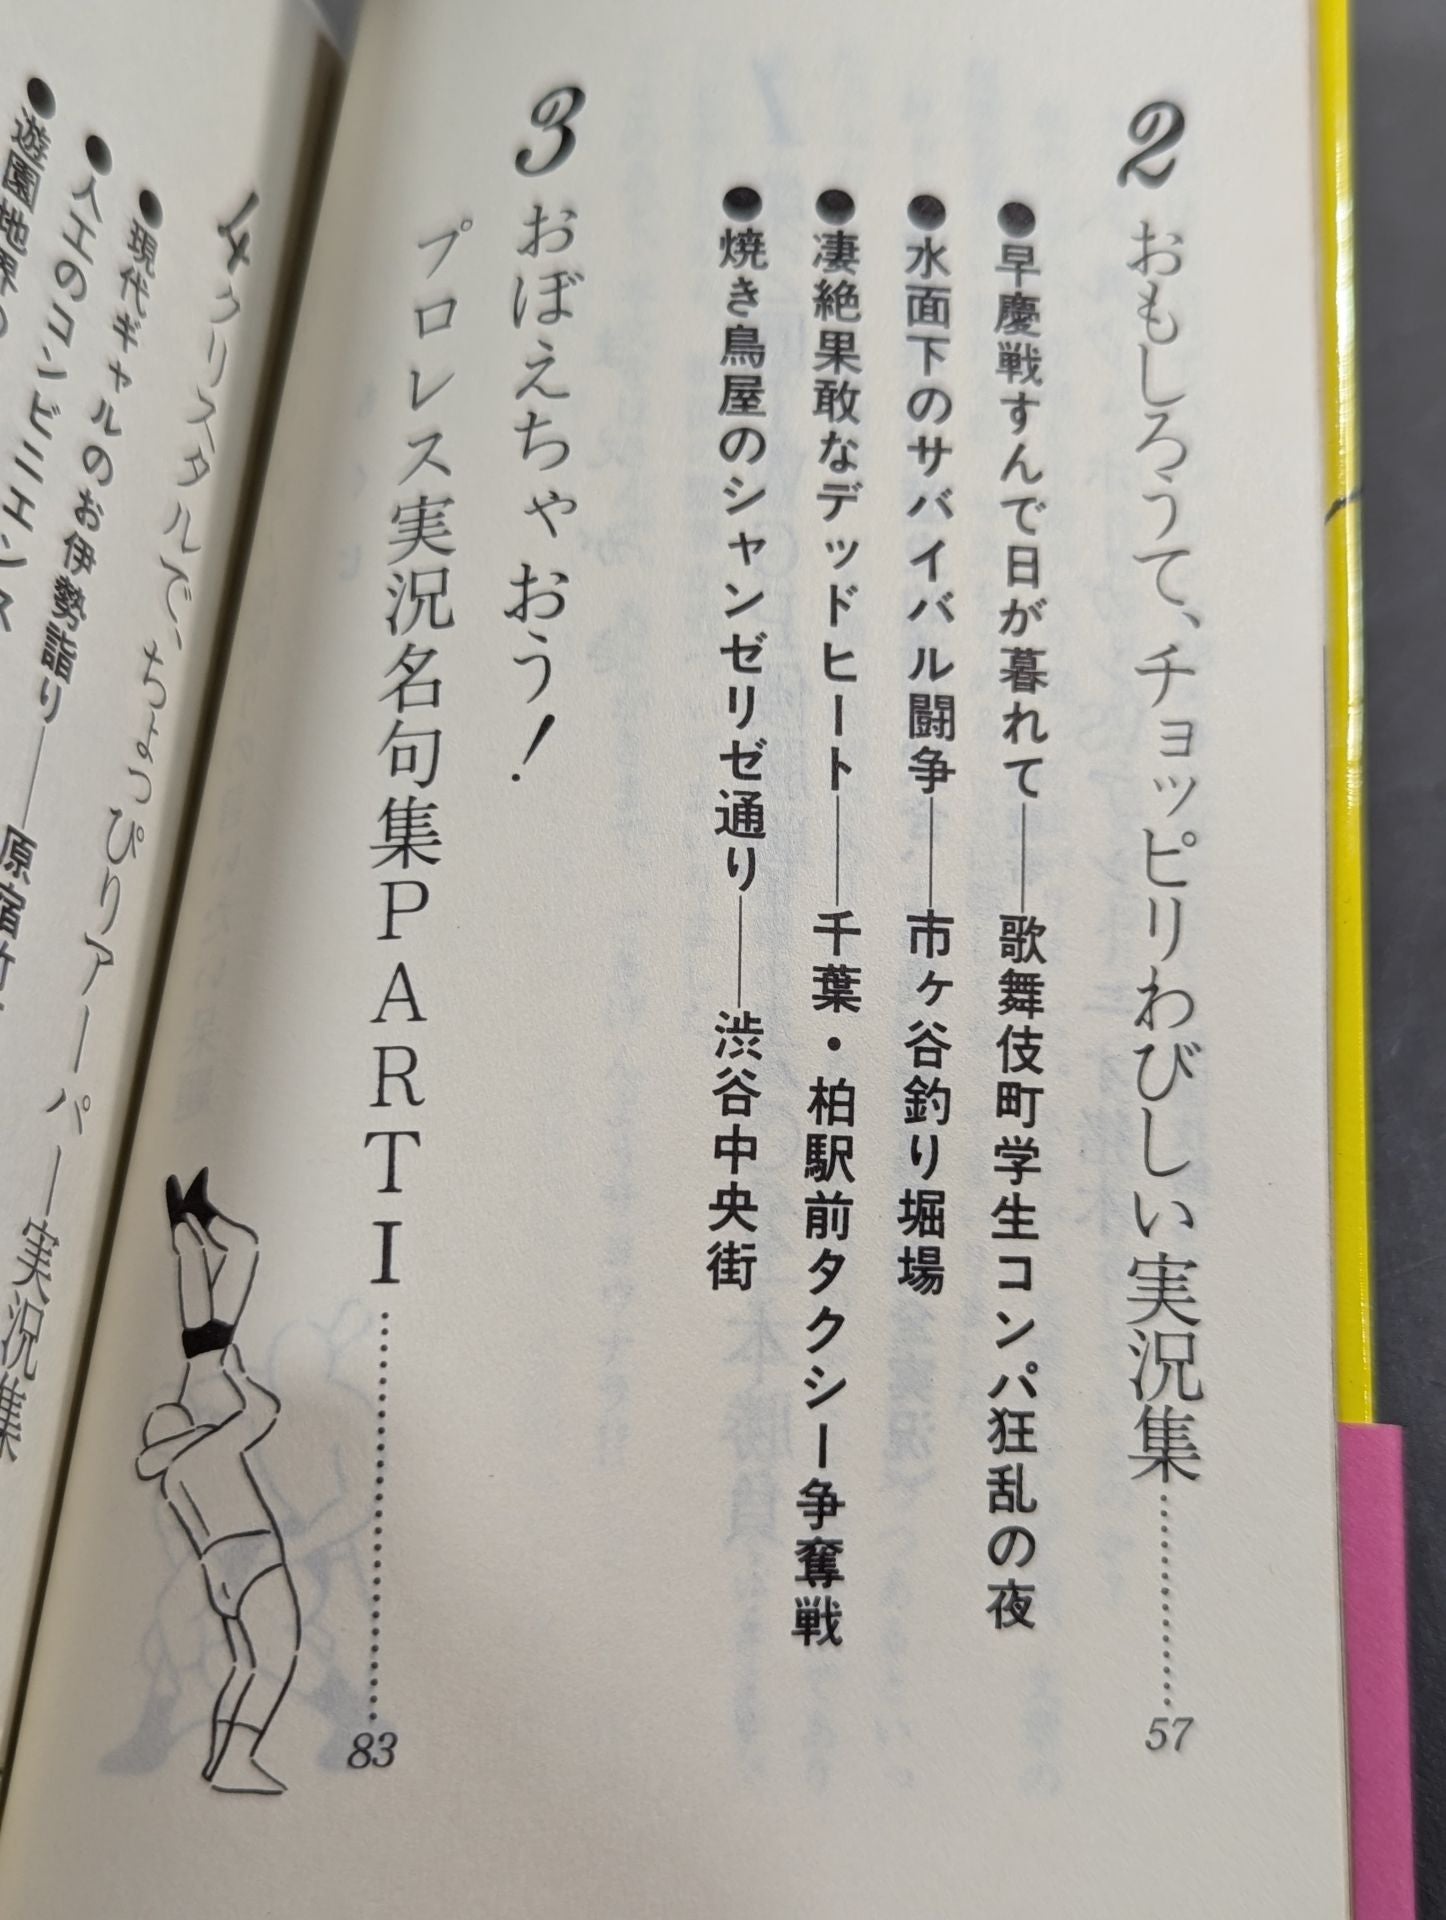 2 おもしろうて、チョッピリわびしい実況集……57
●早慶戦すんで日が暮れて――歌舞伎町学生コンパ狂乱の夜
●水面下のサバイバル闘争――市ヶ谷釣り堀場
●凄絶果敢なデッドヒート――千葉・柏駅前タクシー争奪戦
●焼き鳥屋のシャンゼリゼ通り――渋谷中央街
3 おぼえちゃおう!
プロレス実況名句集PARTI……83
4 クリスタルで、ちょっぴりアーパー実況集
●現代ギャルのお伊勢詣り――原宿竹
●人工のコンビニエンス
●遊園地界の